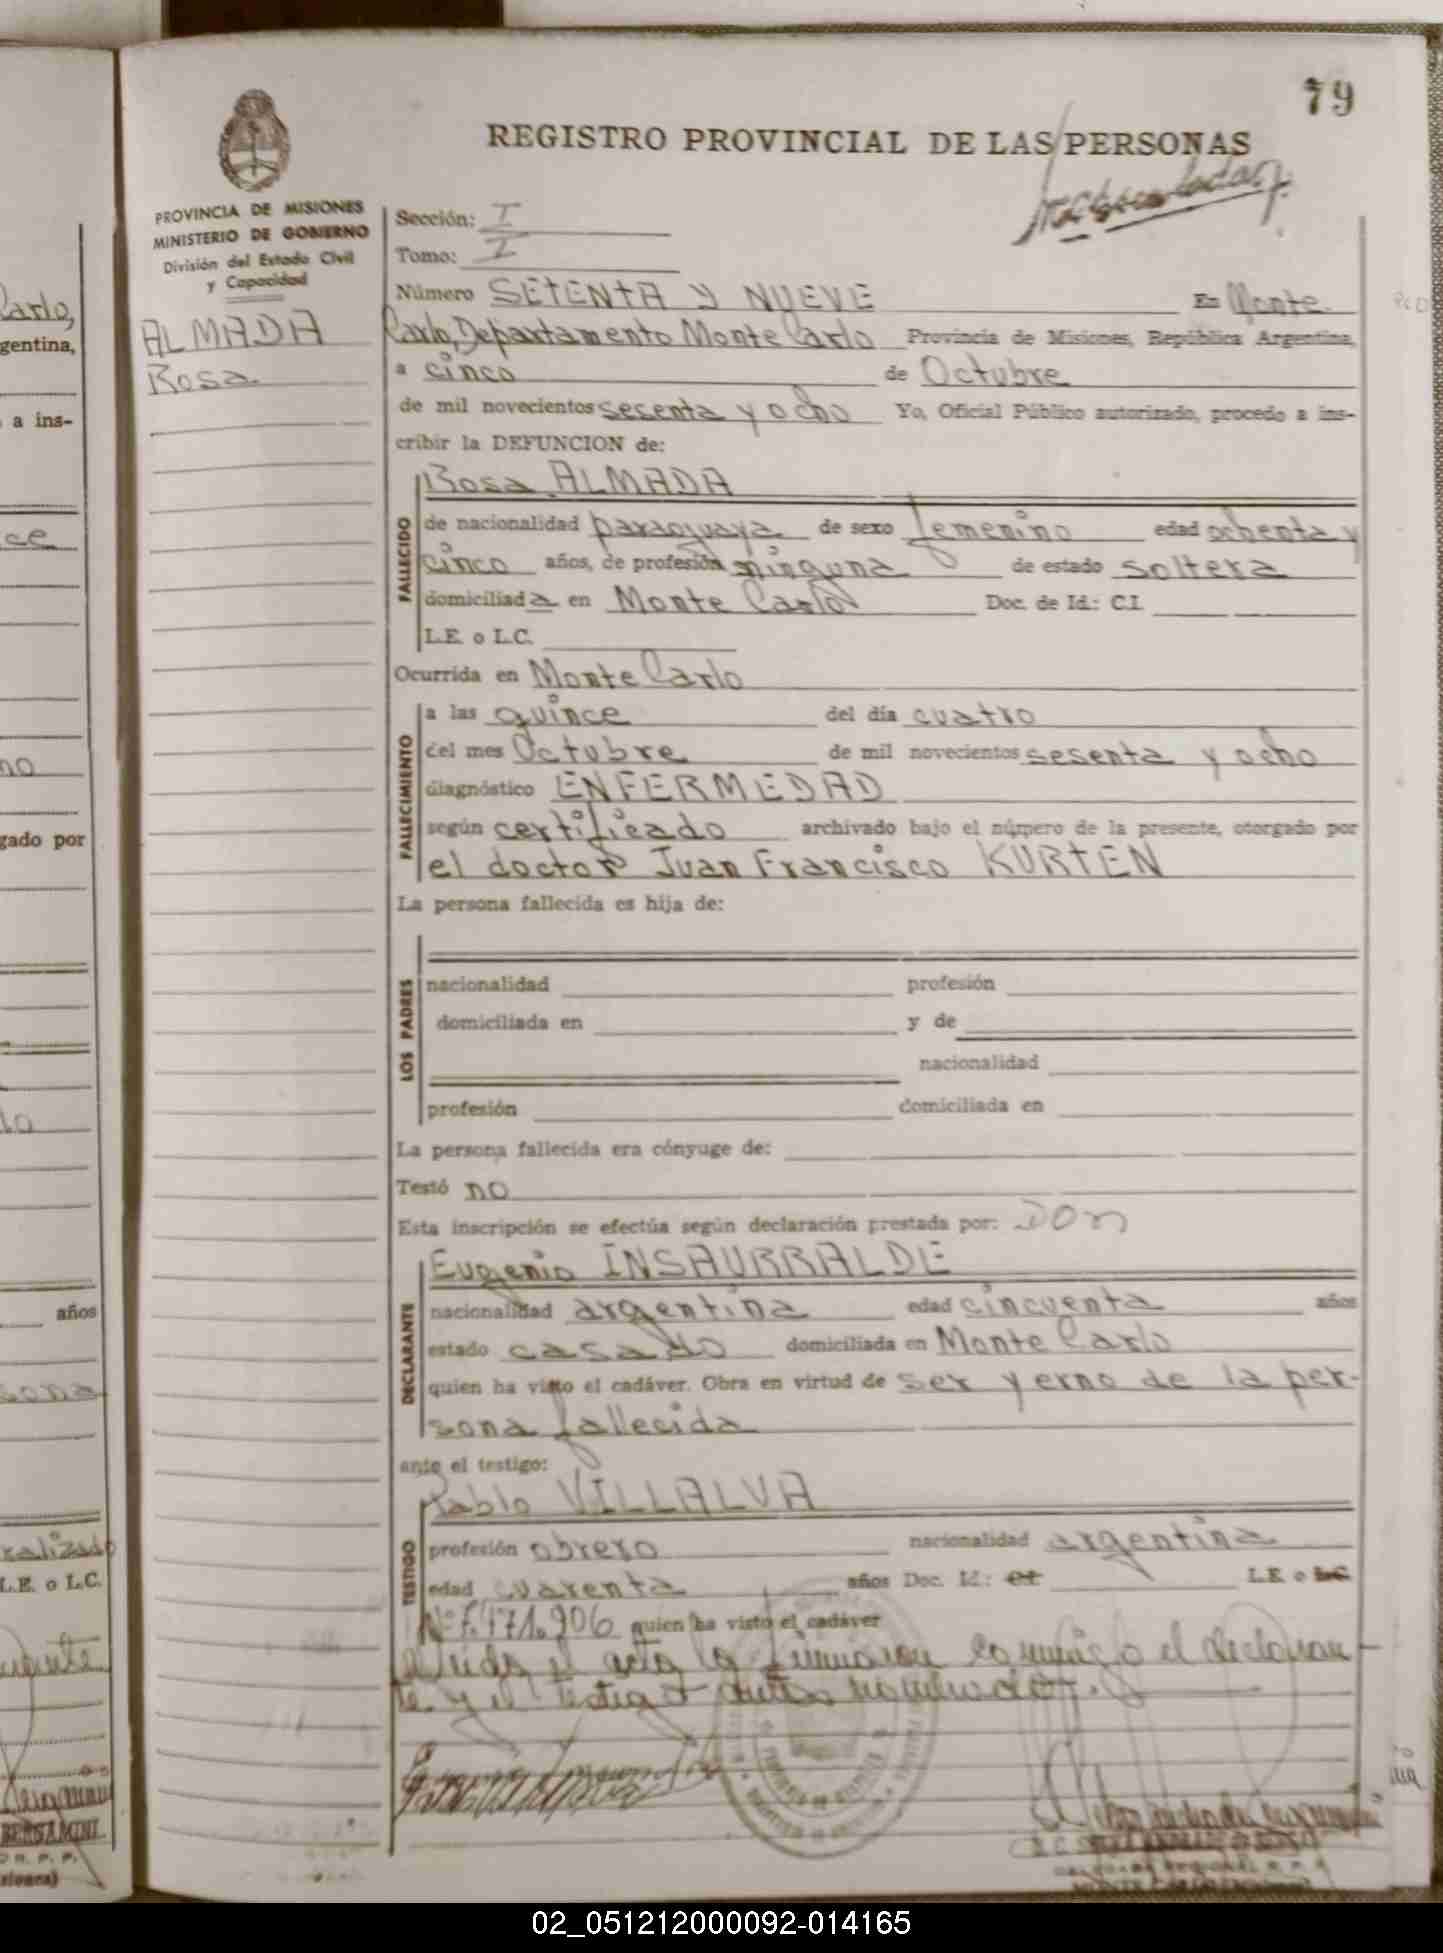 79
REGISTRO PROVINCIAL DE LAS PERSONAS
PROVINCIA DE MISIONES
MINISTERIO DE GOBIERNO
División del Estado Civil
y Capacidad
ALMADA
Rosa
Sección: I
Tomo: I
Número SETENTA Y NUEVE En Monte
Carlo, Departamento Monte Carlo Provincia de Misiones, República Argentina,
a cinco de Octubre
de mil novecientos sesenta y ocho Yo, Oficial Público autorizado, procedo a ins-
cribir la DEFUNCION de:
FALLECIDO
Rosa ALMADA
de nacionalidad paraguaya de sexo femenino edad ochenta y
cinco años, de profesión ninguna de estado soltera
domiciliada en Monte Carlo Doc. de Id.: C.I.
L.E. o L.C.
Ocurrida en Monte Carlo
FALLECIMIENTO
a las quince del día cuatro
del mes Octubre de mil novecientos sesenta y ocho
diagnóstico ENFERMEDAD
según certificado archivado bajo el número de la presente, otorgado por
el doctor Juan Francisco KURTEN
La persona fallecida es hija de:
LOS PADRES
nacionalidad profesión
domiciliada en y de
nacionalidad
profesión domiciliada en
La persona fallecida era cónyuge de:
Testó no
Esta inscripción se efectúa según declaración prestada por: DOn
DECLARANTE
Eugenio INSAURRALDE
nacionalidad argentina edad cincuenta años
estado casado domiciliada en Monte Carlo
quien ha visto el cadáver. Obra en virtud de ser yerno de la per-
sona fallecida
ante el testigo:
TESTIGO
Pablo VILLALVA
profesión obrero nacionalidad argentina
edad cuarenta años Doc. Id.: L.E. o L.C.
quien ha visto el cadáver
el acta la conmigo el declaran
te y el testigo
Carlo,
gentina,
a ins-
gado por
años
L.E. o L.C.
BERGAMINI
02_051212000092-014165